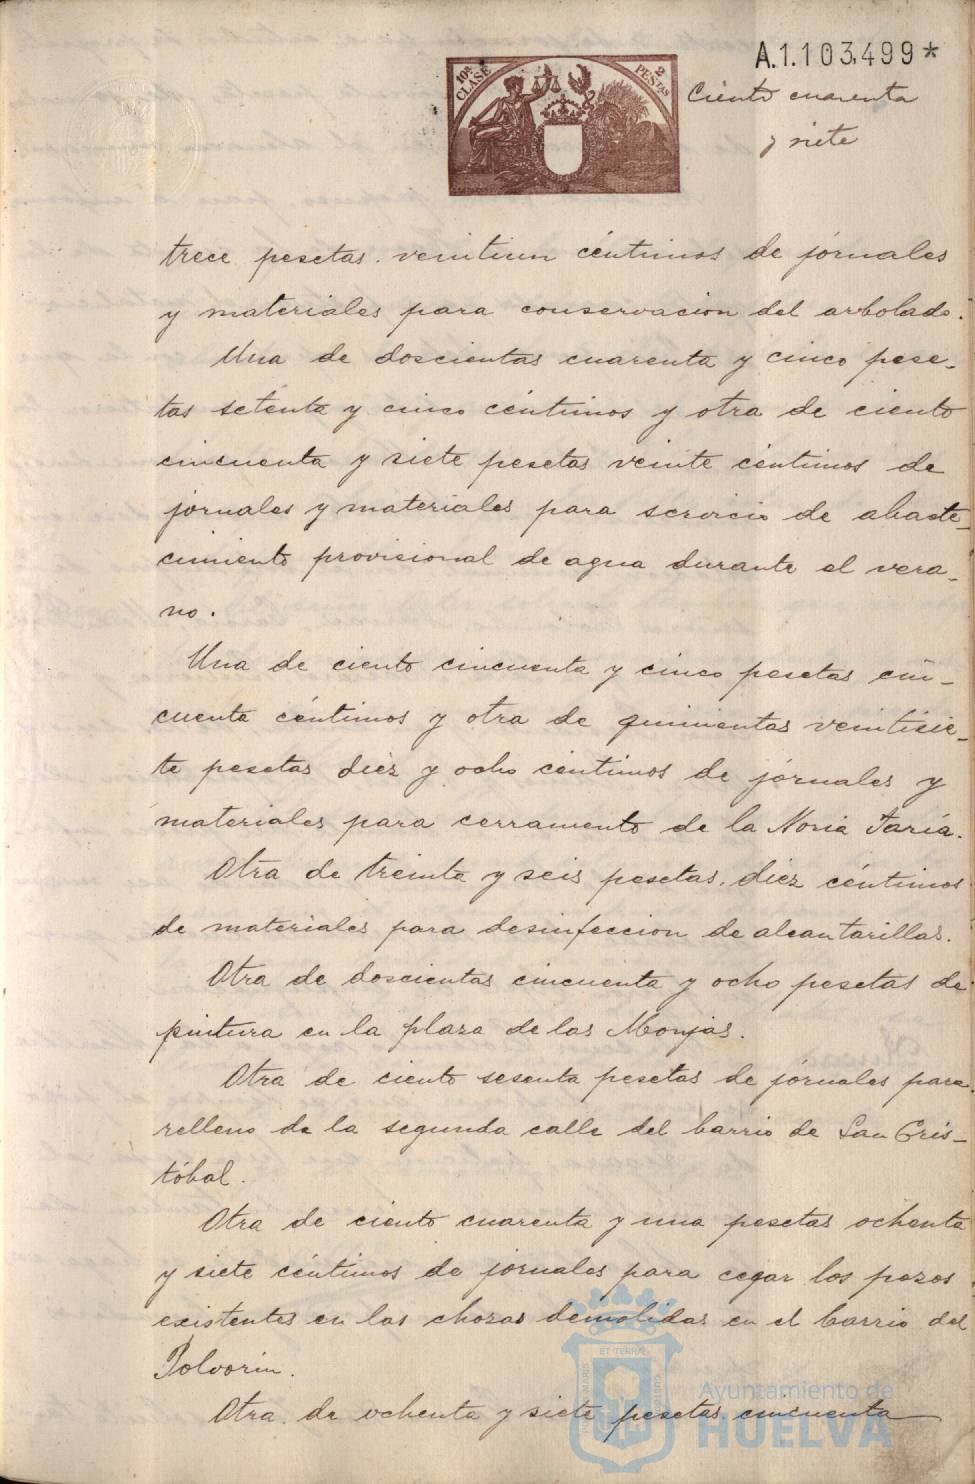 A.1.103,499*
10ª CLASE
2 PESTAS
Ciento cuarenta
y siete
trece pesetas veintiun céntimos de jornales
y materiales para conservacion del arbolado.
Una de doscientas cuarenta y cinco pese-
tas setenta y cinco céntimos y otra de ciento
cincuenta y siete pesetas veinte céntimos de
jornales y materiales para servicio de abaste-
cimiento provisional de agua durante el vera-
no.
Una de ciento cincuenta y cinco pesetas cin-
cuenta céntimos y otra de quinientas veintisie-
te pesetas diez y ocho céntimos de jornales y
materiales para cerramento de la Noria Taría.
Otra de treinta y seis pesetas, diez céntimos
de materiales para desinfeccion de alcantarillas.
Otra de doscientas cincuenta y ocho pesetas de
pintura en la plaza de las Monjas.
Otra de ciento sesenta pesetas de jornales para
relleno de la segunda calle del barrio de San Cris-
tóbal.
Otra de ciento cuarenta y una pesetas ochenta
y siete céntimos de jornales para cegar los pozos
existentes en las chozas demolidas en el barrio del
Polvorin.
Otra de ochenta y siete pesetas cincuenta
Ayuntamiento de
HUELVA